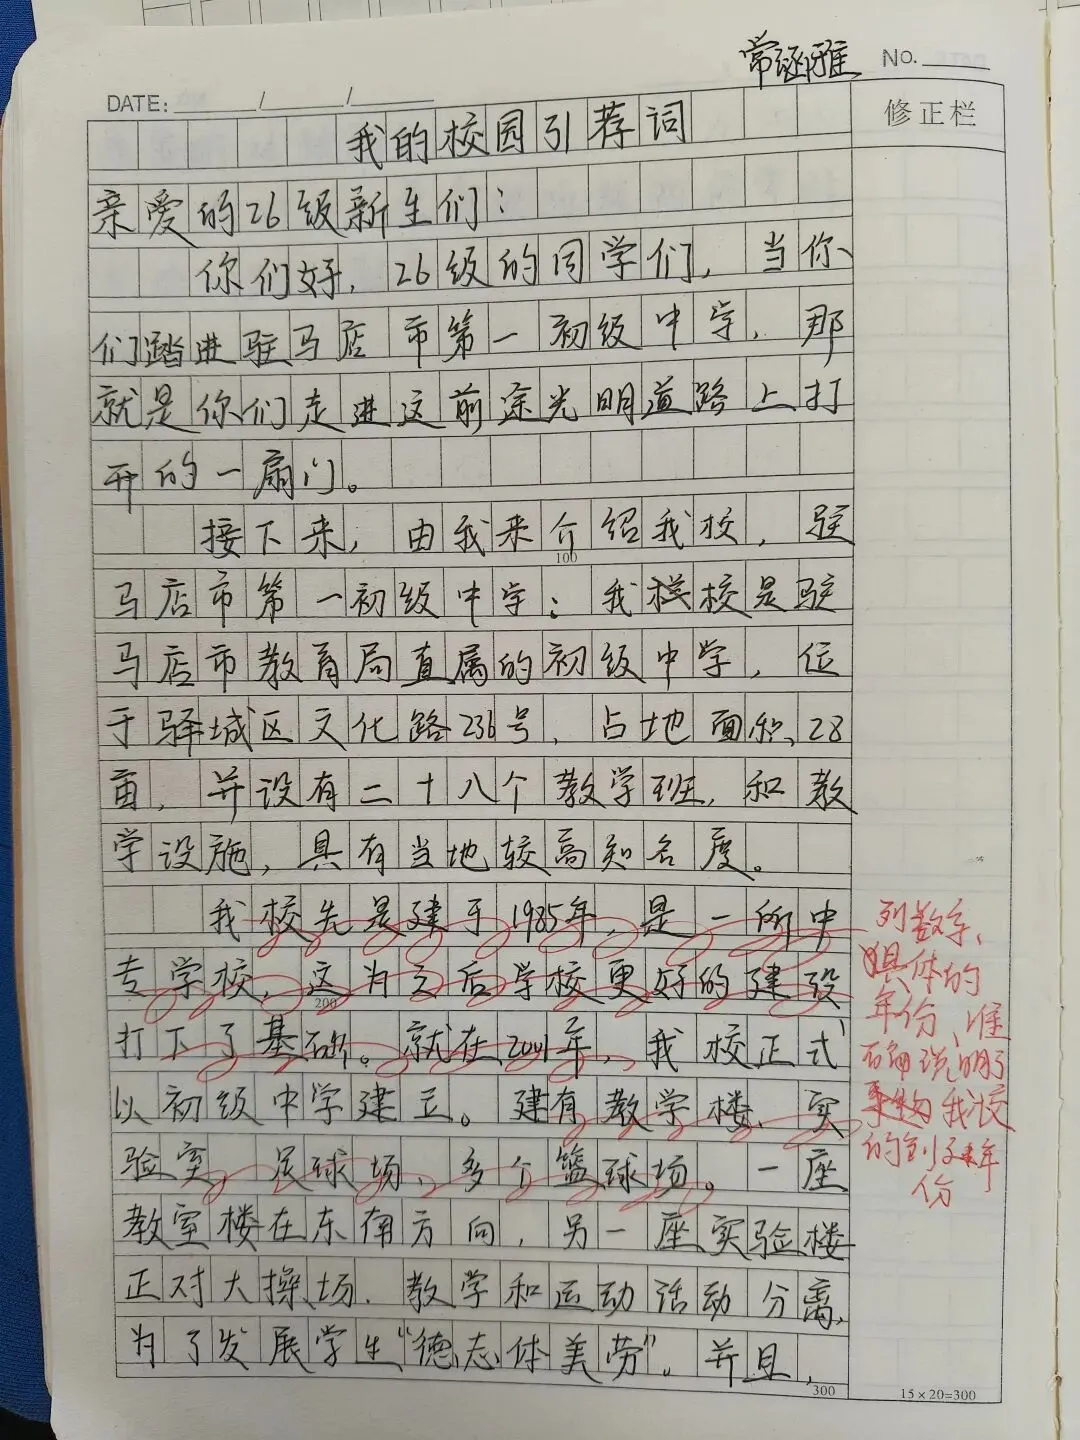 常涵雅
NO.
DATE: / /
修正栏
我的校园引荐词
亲爱的26级新生们：
你们好，26级的同学们，当你
们踏进驻马店市第一初级中学，那
就是你们走进这前途光明道路上打
开的一扇门。
接下来，由我来介绍我校，驻
100
马店市第一初级中学：我校是驻
马店市教育局直属的初级中学，位
于驿城区文化路236号，占地面积28
亩，并设有二十八个教学班，和教
学设施，具有当地较高知名度。
我校先是建于1985年，是一所中
专学校，这为之后学校更好的建设
200
打下了基础。就在2001年，我校正式
以初级中学建立。建有教学楼、实
验室、足球场、多个篮球场。一座
教室楼在东南方向，另一座实验楼
正对大操场，教学和运动活动分离，
为了发展学生“德、志、体美劳”。并且，
300
15×20=300
列数字，
具体的
年份，准
确说明了
我校
的
年
份